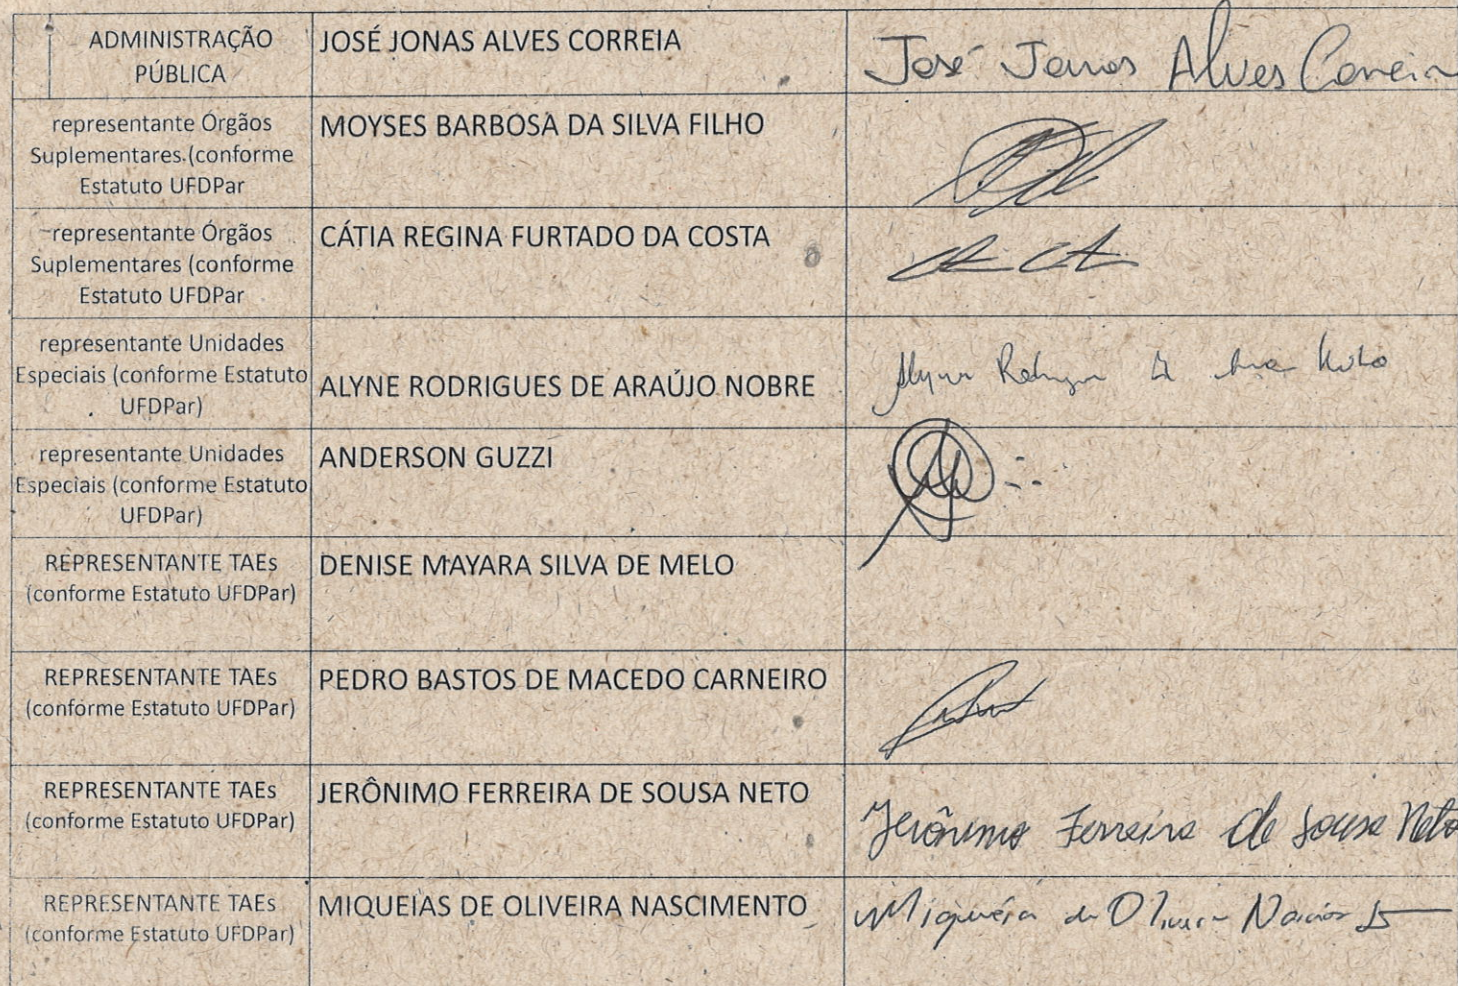 ADMINISTRAÇÃO
PÚBLICA
JOSÉ JONAS ALVES CORREIA
José Jonas Alves Correia
representante Órgãos
Suplementares (conforme
Estatuto UFDPar
MOYSES BARBOSA DA SILVA FILHO
representante Órgãos
Suplementares (conforme
Estatuto UFDPar
CÁTIA REGINA FURTADO DA COSTA
representante Unidades
Especiais (conforme Estatuto
UFDPar)
ALYNE RODRIGUES DE ARAÚJO NOBRE
representante Unidades
Especiais (conforme Estatuto
UFDPar)
ANDERSON GUZZI
REPRESENTANTE TAEs
(conforme Estatuto UFDPar)
DENISE MAYARA SILVA DE MELO
REPRESENTANTE TAEs
(conforme Estatuto UFDPar)
PEDRO BASTOS DE MACEDO CARNEIRO
REPRESENTANTE TAEs
(conforme Estatuto UFDPar)
JERÔNIMO FERREIRA DE SOUSA NETO
Jerônimo Ferreira de Sousa Neto
REPRESENTANTE TAEs
(conforme Estatuto UFDPar)
MIQUEIAS DE OLIVEIRA NASCIMENTO
Miqueias de Oliveira